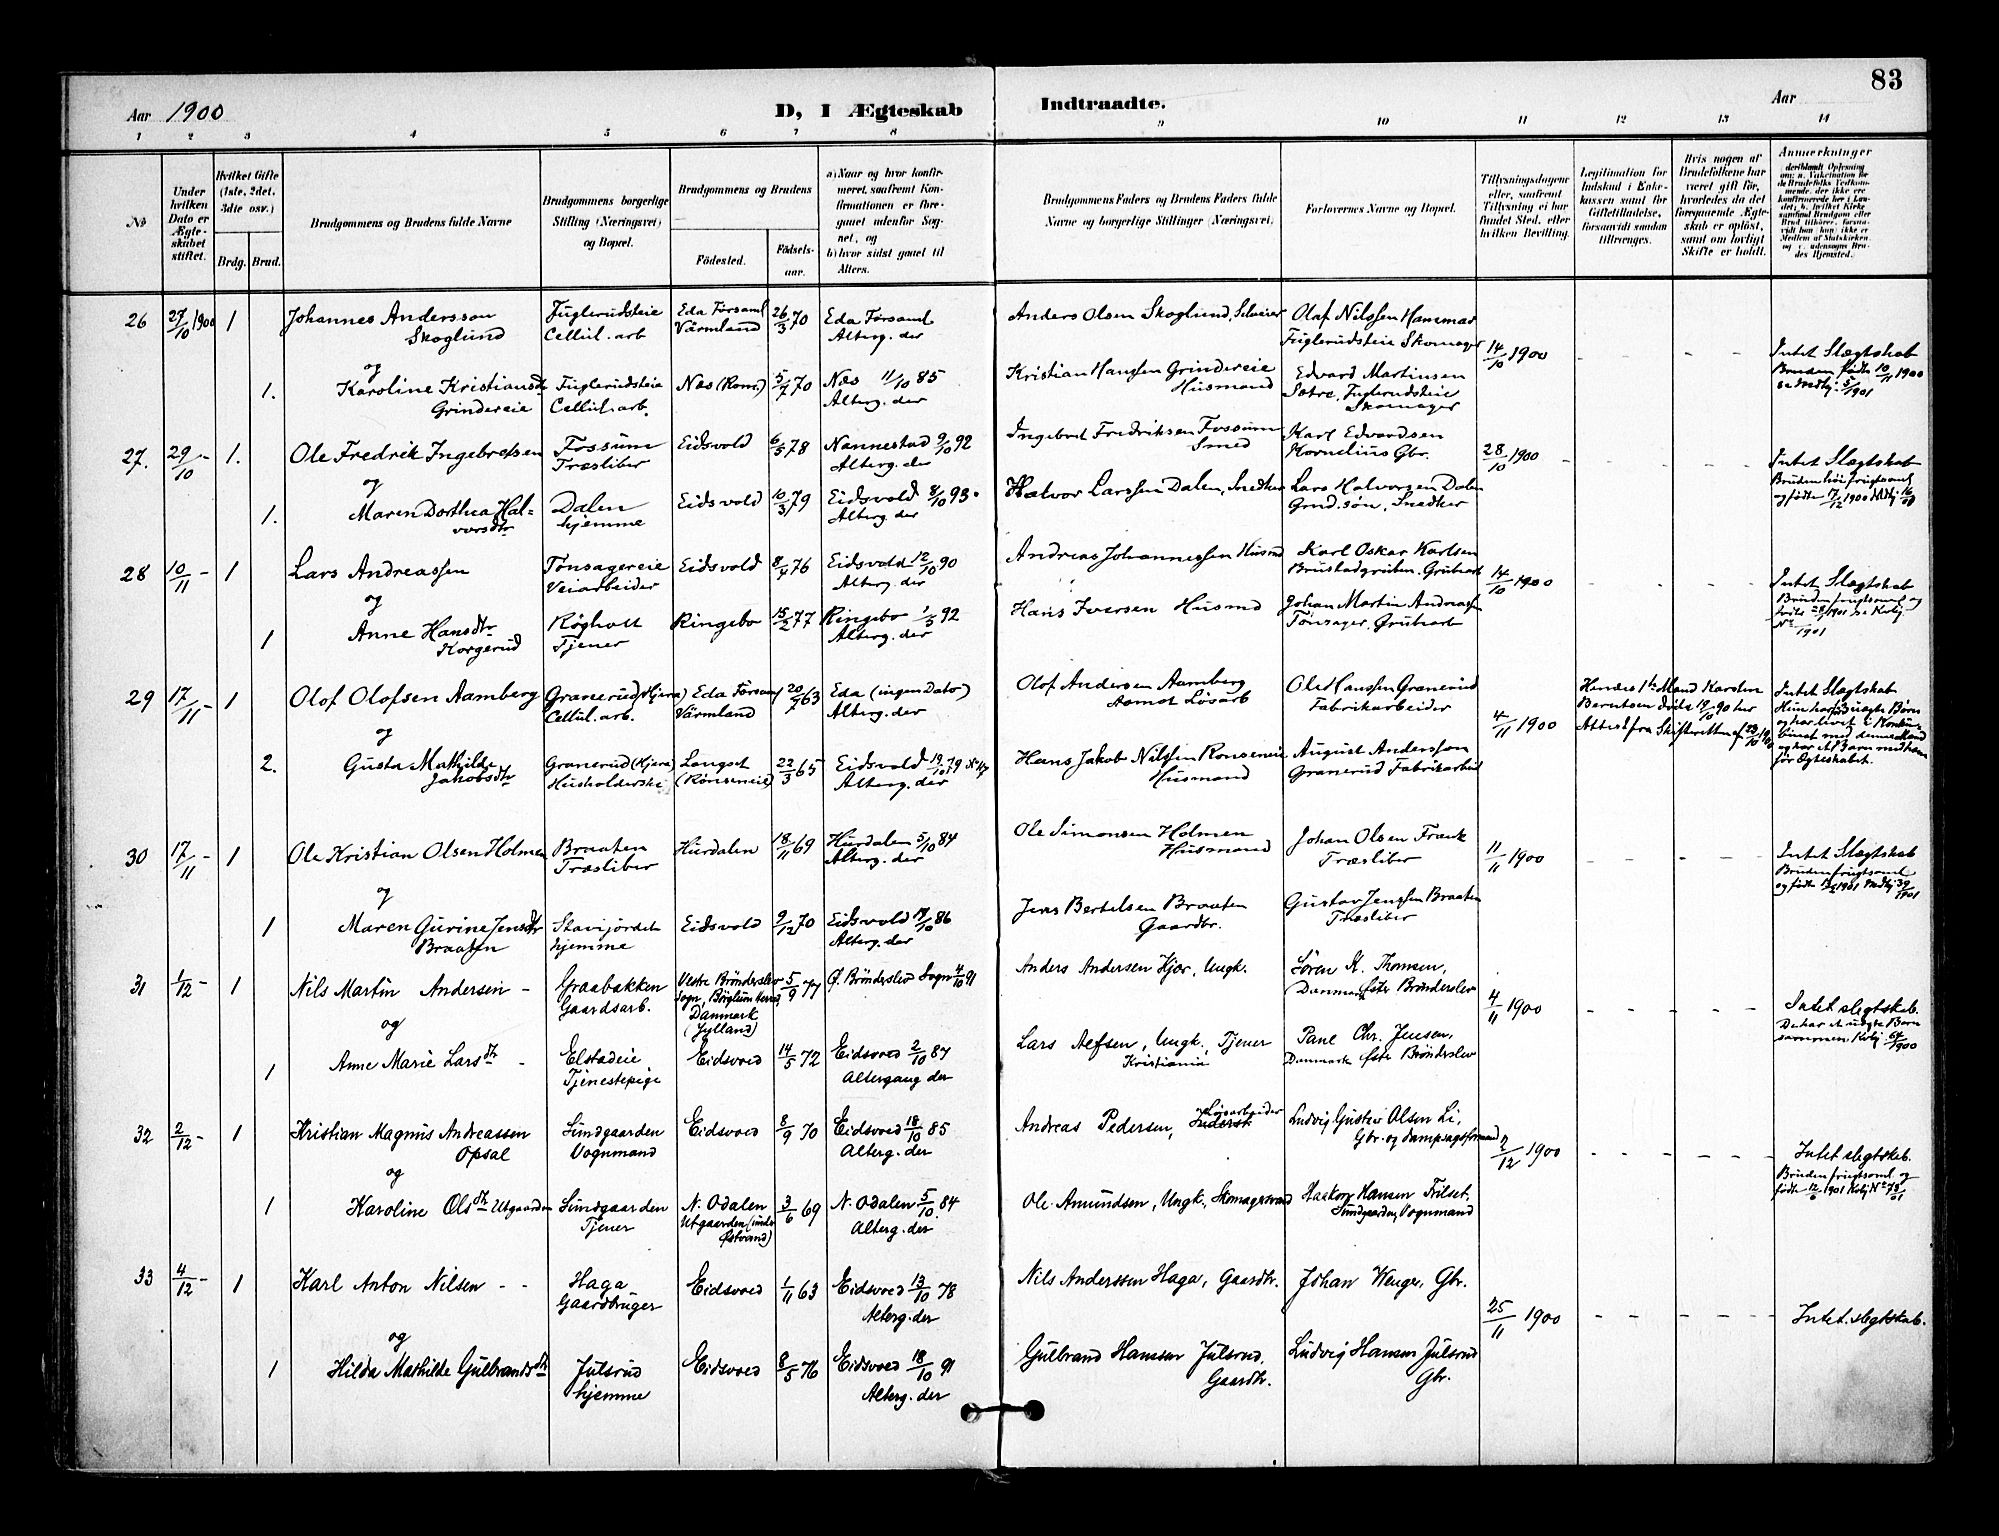 83
Aar 1900
D, I Ægteskab Indtraadte.
Aar
1 2 3 4 5 6 7 8 9 10 11 12 13 14
No
Under hvilken Dato er Ægteskabet stiftet.
Hvilket Gifte (1ste, 2det, 3die osv.)
Brdg. Brud.
Brudgommens og Brudens fulde Navne
Brudgommens borgerlige Stilling (Næringsvei) og Bopæl.
Brudgommens og Brudens
Fødested.
Fødselsaar.
a) Naar og hvor konfirmeret, saafremt Konfirmationen er foregaaet udenfor Sognet, og
b) hvor sidst gaaet til Alters.
Brudgommens Faders og Brudens Faders fulde Navne og borgerlige Stillinger (Næringsvei).
Forlovernes Navne og Bopæl.
Tillysningsdagene eller, saafremt Tillysning ei har fundet Sted, efter hvilken Bevilling.
Legitimation for Indskud i Enkekassen samt for Giftetilladelse, forsaavidt saadan tiltrænges.
Hvis nogen af Brudefolkene har været gift før, hvorledes da det foregaaende Ægteskab er opløst, samt om lovligt Skifte er holdt.
Anmerkninger
26 27/10 1900 1 Johannes Andersson Skoglund
Fuglerudsteie Cellul.arb
Eda Forsaml Värmland 26/3 70
Eda Forsaml Alterg. der
Anders Olsen Skoglund,
Olaf Nilssen Hammar Fuglerudsteie Skomager
14/10 1900
Intet Slægtskab
Bruden fødte 10/11 1900
og
1. Karoline Kristiansdtr Grindereie
Fuglerudsteie Cellul.arb.
Næs (Rom.) 5/7 70
Næs 11/10 85 Alterg. der
Kristian Hanssen Grindereie Husmand
Edvard Martinsen Sætre, Fuglerudsteie Skomager
27. 29/10 - 1. Ole Fredrik Ingebretsen
Fossum Træsliber
Eidsvold 6/5 78
Nannestad 9/10 92 Alterg. der
Ingebret Fredriksen Fossum Smed
Karl Edvardsen Kornelius Gbr.
28/10 1900
Intet Slægtskab
og
1. Maren Dorthea Halvorsdtr
Dalen hjemme
Eidsvold 10/3 79
Eidsvold 8/10 93. Alterg. der
Halvor Larssen Dalen, Snedker
Lars Halvorsen Dalen Grnd.søn, Snedker
28 10/11 - 1 Lars Andreassen
Tønsagereie Veiarbeider
Eidsvold 8/4 76
Eidsvold 12/10 90 Alterg. der
Andreas Johannessen Husmd
Karl Oskar Karlsen Brustadgruben. Grubarb
14/10 1900
Intet Slægtskab
Bruden frugtsomel og
og
1 Anne Hansdtr Korgerud
Røgholt Tjener
Ringebo 15/2 77
Ringebo 1/3 92 Alterg. der
Hans Iversen Husmd
Johan Martin Andreassen Tønsager, Grubarb
29 17/11 - 1 Olof Olofsen Aamberg
Granerud (Hjera) Cellul.arb.
Eda Forsaml Värmland 20/7 63
Eda (ingen Dato) Alterg. der
Olof Andersen Aamberg Aamot Løsarb
Ole Hanssen Granerud Fabrikarbeider
4/11 1900
Hendes 1te Mand Karsten Berntsen døde 19/10 90 her
Attest fra Skifteretten af
Intet Slægtskab
og
2. Gusta Mathilde Jakobsdtr
Granerud (Hjera) Husholderske
Langset (Rønseneie) 22/3 65
Eidsvold 19/10 79 Alterg. der
Hans Jakob Nilssen Rønseneie Husmand
August Andersson Granerud Fabrikarbeid
før Ægteskabet.
30 17/11 - 1 Ole Kristian Olsen Holmen
Braaten Træsliber
Hurdalen 18/11 69
Hurdalen 5/10 84 Alterg. der
Ole Simonsen Holmen Husmand
Johan Olsen Træsliber
11/11 1900
Intet Slægtskab
Bruden frugtsomel
og
1 Maren Gurine Jensdtr Braaten
Stavijordet hjemme
Eidsvold 9/12 70
Eidsvold 17/10 86 Alterg. der
Jens Bertelsen Braaten Gaardbr.
Gustav Jenssen Braaten Træsliber
31 1/12 - 1 Nils Martin Andersen -
Graabakken Gaardsarb.
Vestre Brönderslev Sogn, Börglum Herred Danmark (Jylland) 5/9 77
Ø. Brönderslev Sogn 4/10 91
Anders Andersen Kjær, Ungk.
Sören K. Thomsen, Danmark Øster Brönderslev
4/11 1900
Intet slegtskab.
De har et uægte Barn sammen.
og
1 Anne Marie Larsdtr -
Elstadeie Tjenestepige
Eidsvold 14/5 72
Eidsvold 2/10 87 Altergang der
Lars Aefsen, Ungk., Tjener Kristiania
Pane Chr. Jensen, Danmark Øster Brönderslev
32 2/12 - 1 Kristian Magnus Andreassen Opsal
Sundgaarden Vognmand
Eidsvold 8/9 70
Eidsvold 18/10 85 Alterg. der
Andreas Pedersen, Løsarbeider
Ludvig Gustav Olsen Li, Gbr. og dampsagsformand
2/12 1900
Intet slegtskab.
Bruden frugtsomel og
og
1 Karoline Olsdtr Utgaarden
Sundgaarden Tjener
N. Odalen Utgaarden (under Østvand) 3/6 69
N. Odalen 5/10 84 Alterg. der
Ole Amundsen, Ungk., Skomagersvend
Haakon Hansen Trilset, Sundgaarden, Vognmand
33 4/12 - 1 Karl Anton Nilsen - -
Haga Gaardbruger
Eidsvold 1/11 63
Eidsvold 13/10 78 Alterg. der
Nils Anderssen Haga, Gaardbr.
Johan Wenger, Gbr.
25/11 1900
Intet slegtskab.
og
1 Hilda Mathilde Gulbrandsdtr
Julsrud hjemme
Eidsvold 8/5 76
Eidsvold 18/10 91 Alterg. der
Gulbrand Hansen Julsrud, Gaardbr.
Ludvig Hansen Julsrud Gbr.